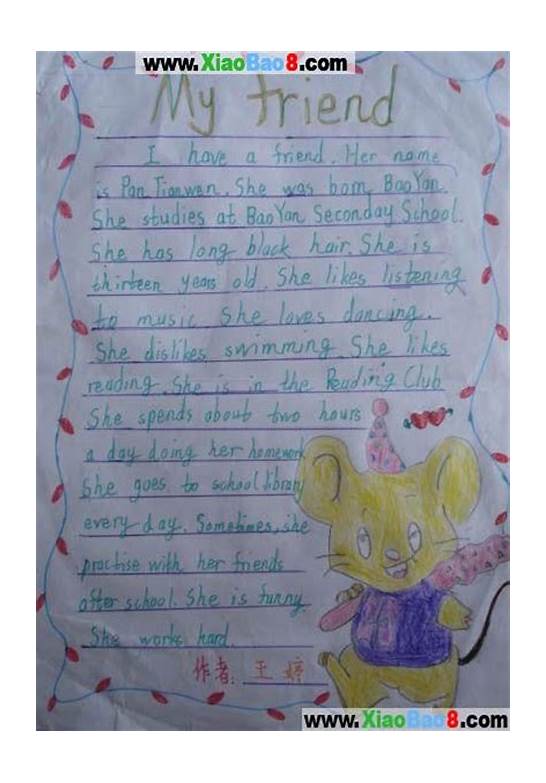 www.XiaoBao8.com
My friend
I have a friend. Her name
is Pan Tianwan. She was born BaoYan.
She studies at BaoYan Seconday School.
She has long black hair. She is
thirteen years old. She likes listening
to music. She loves dancing.
She dislikes swimming. She likes
reading. She is in the Reading Club
She spends about two hours
a day doing her homework
She goes to school library
every day. Sometimes, she
practise with her friends
after school. She is funny.
She works hard.
作者: 王婷
www.XiaoBao8.com